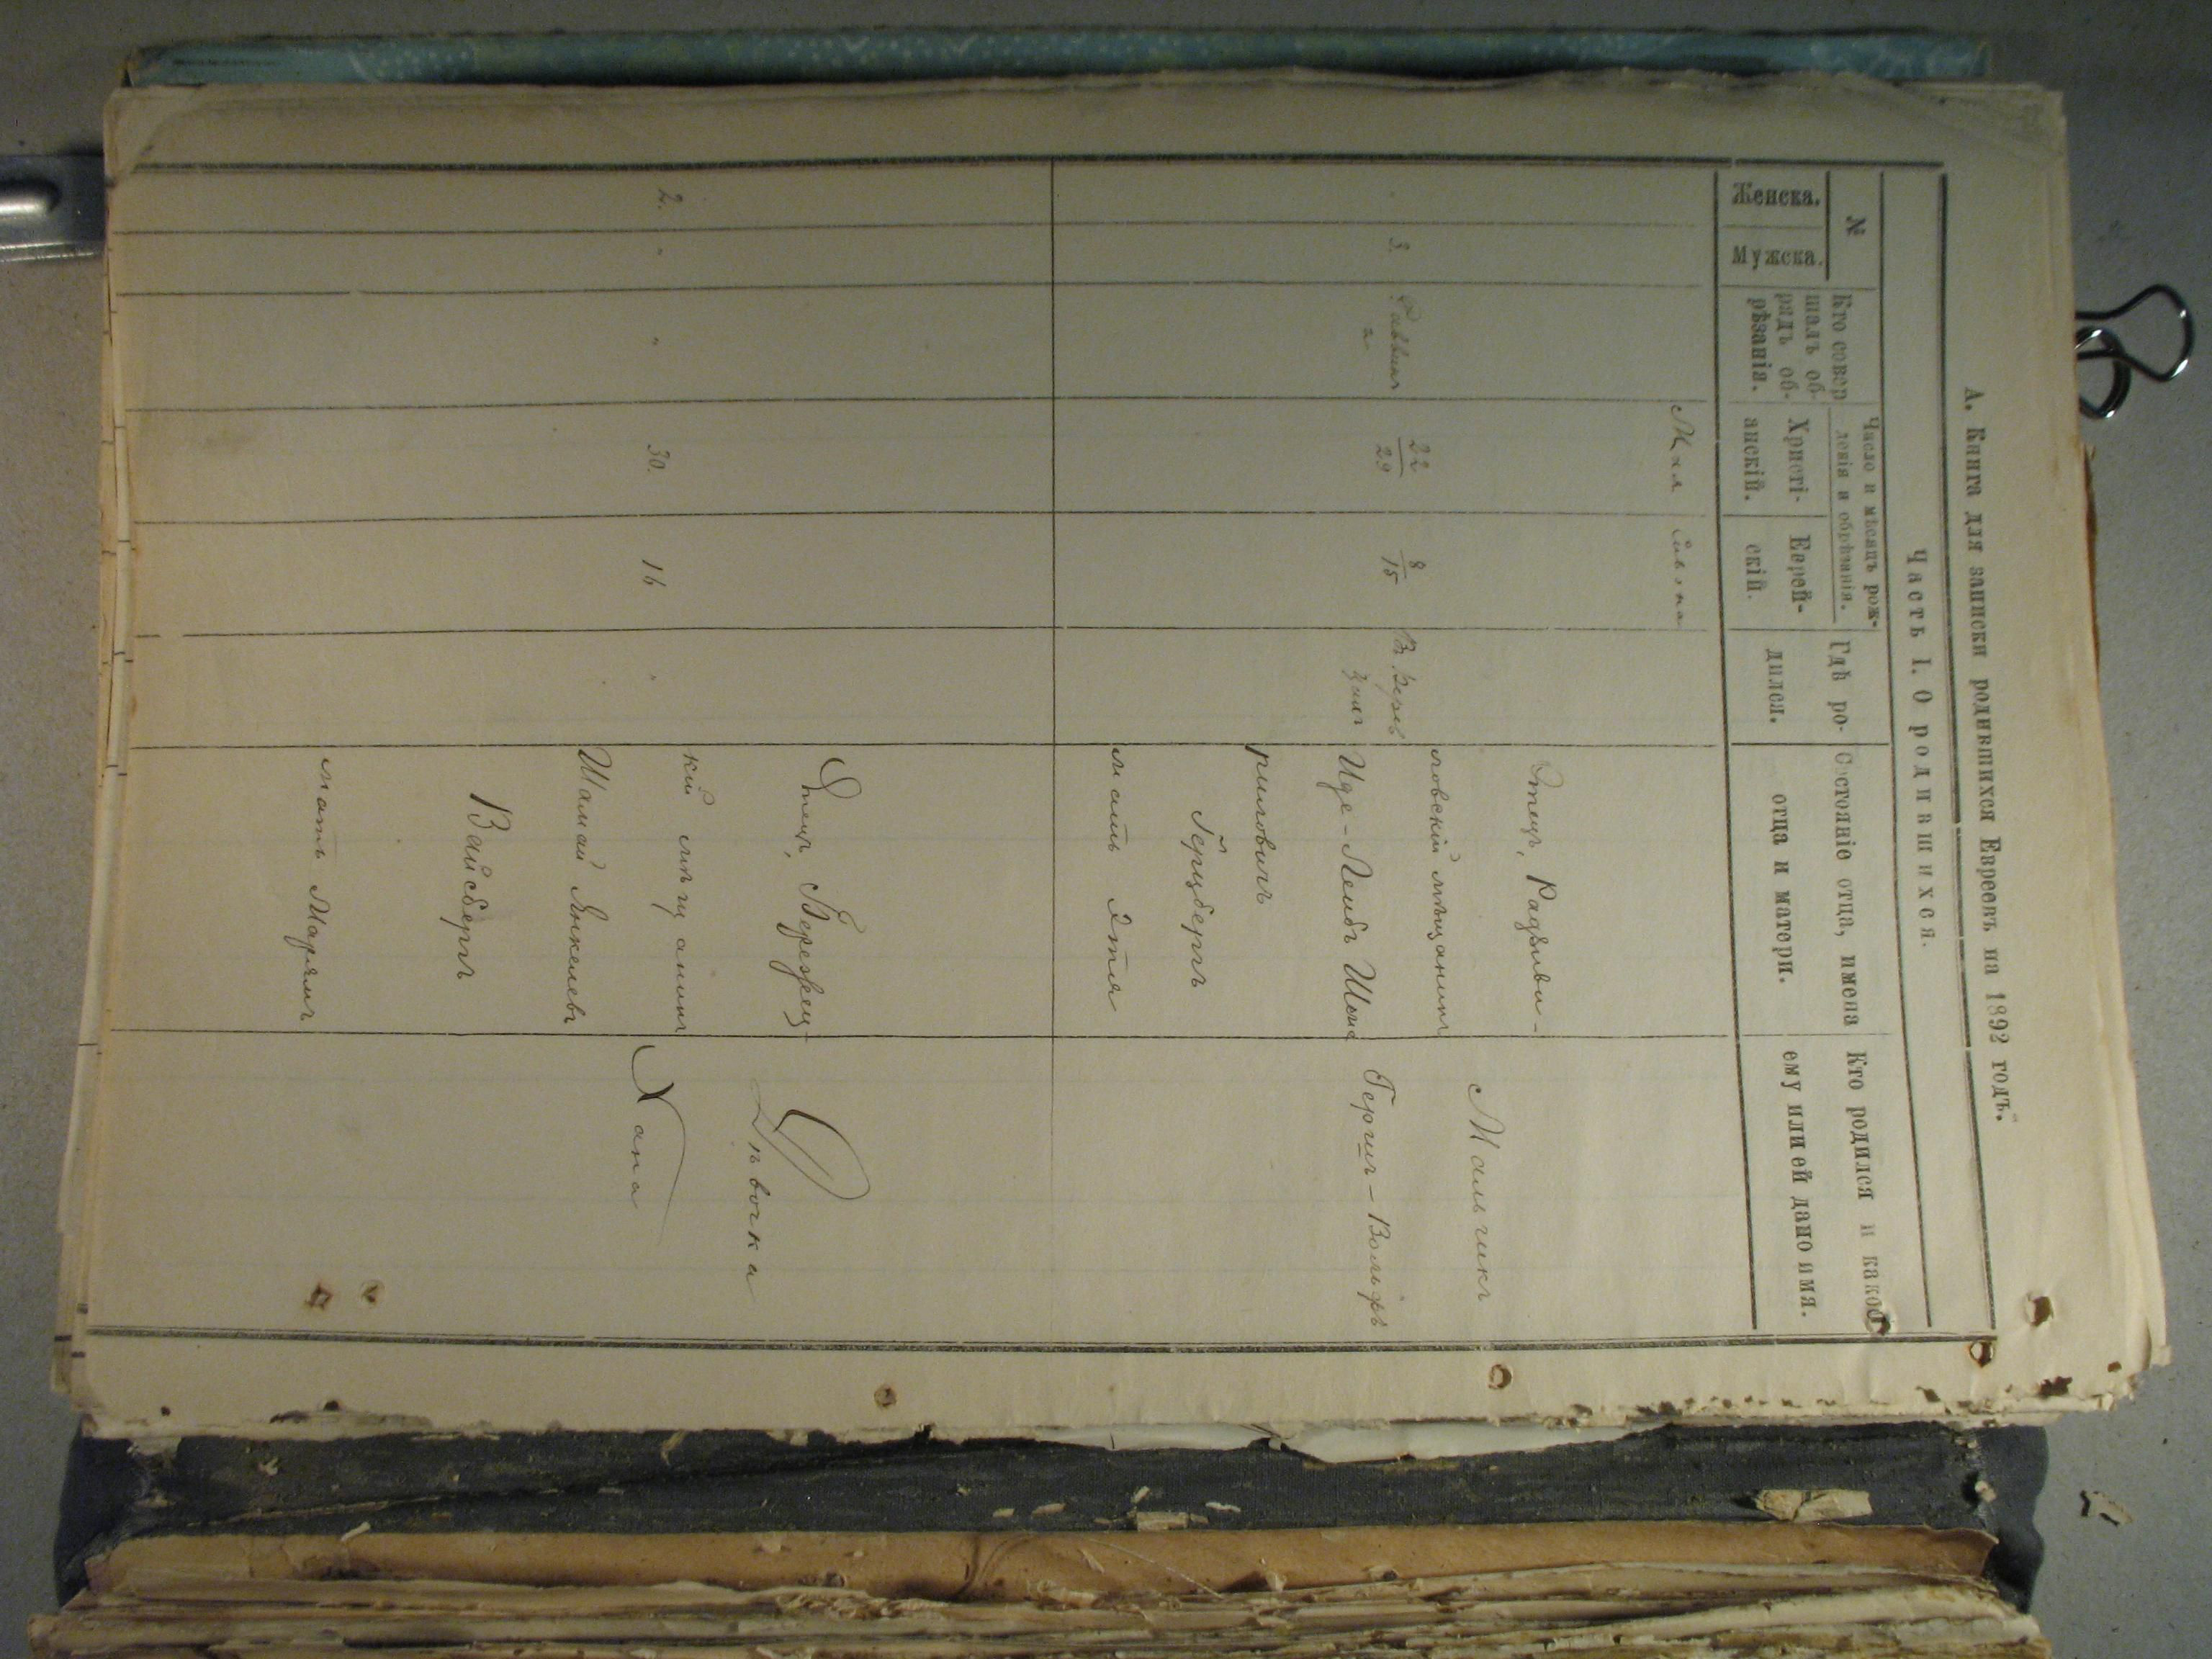 А. Книга для записки родившихся Евреевъ на 1892 годъ.
Часть I. О родившихся.
№
Женска.
Мужска.
Кто совер
шалъ об-
рядъ об-
рѣзанія.
Число и мѣсяцъ рож-
денія и обрѣзанія.
Христі-
анскій.
Еврей-
скій.
Гдѣ ро-
дился.
Состояніе отца, имена
отца и матери.
Кто родился и какое
ему или ей дано имя.
Мая
3.
Раввин
22
29
8
15
Отецъ, Радзиви-
ловскій мѣщанинъ
Иде-Лейбъ
Герцберг
мать Этля
Мальчикъ
Гершъ-Вольфъ
2.
"
"
30.
16
"
Отецъ, Березец-
кій мѣщанинъ
Шамай Янкелевъ
Вайсбергъ
мать Марьямъ
Дѣвочка
Хана